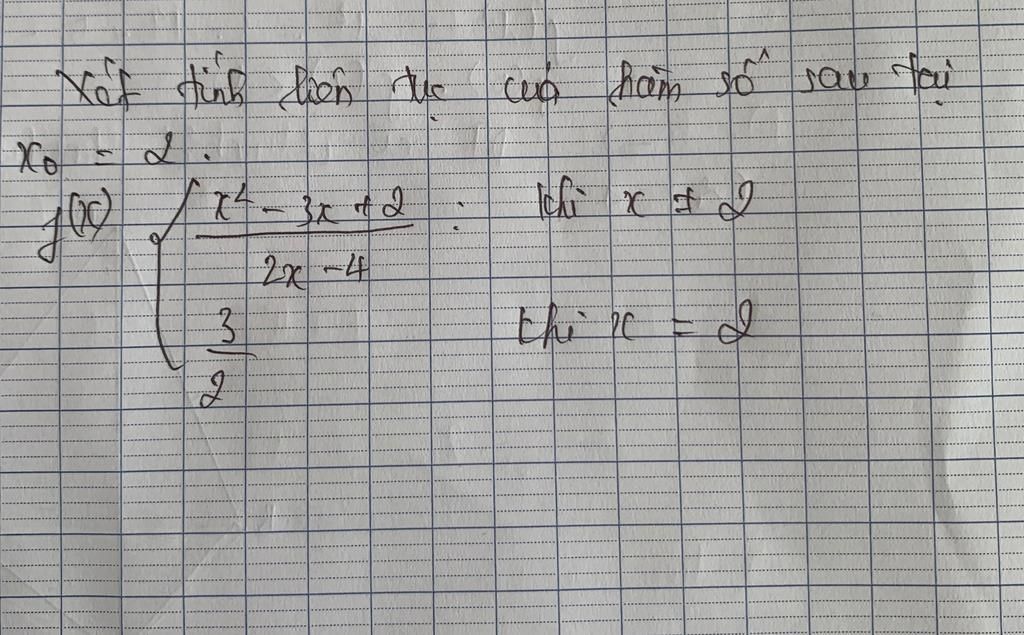 Xét tính liên tục của hàm số sau tại
x₀ = 2.
f(x) { (x² - 3x + 2) / (2x - 4) : khi x ≠ 2
3/2 khi x = 2